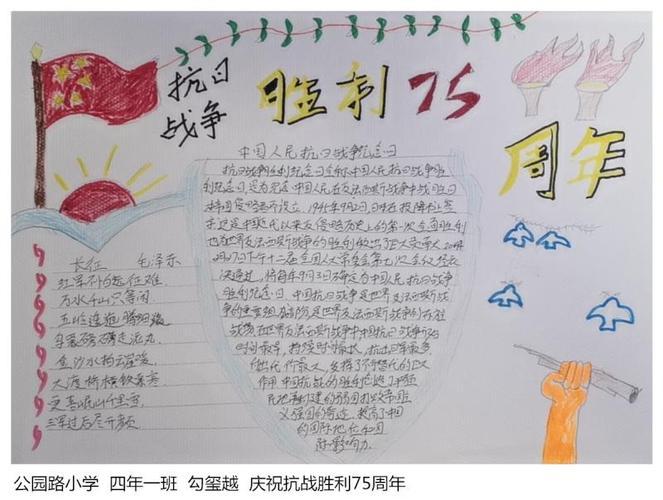 抗日
战争
胜利75
周年
中国人民抗日战争纪念日
抗日战争胜利纪念日全称中国人民抗日战争胜
利纪念日,是为纪念中国人民在反法西斯战争中战胜日
本帝国侵略而设立,1945年9月2日
也在世界反法西斯战争的胜利做出了巨大贡献2014
月27日下午十二届全国人大常委会第七次会议经表
决通过,将每年9月3日确定为中国人民抗日战争
胜利纪念日。中国抗日战争是世界反法西斯战
争的重要组成部分是世界反法西斯战争的东方
战场在世界反法西斯战争中中国抗日战争开始
时间最早,持续时间最长,抗击日军最多
付出代价最大,发挥了不可替代的巨大
作用
的国际地位和国
际影响力。
长征 毛泽东
红军不怕远征难,
万水千山只等闲
五岭逶迤腾细浪
乌蒙磅礴走泥丸
金沙水拍云崖暖
大渡桥横铁索寒
更喜岷山千里雪
三军过后尽开颜
公园路小学 四年一班 勾玺越 庆祝抗战胜利75周年